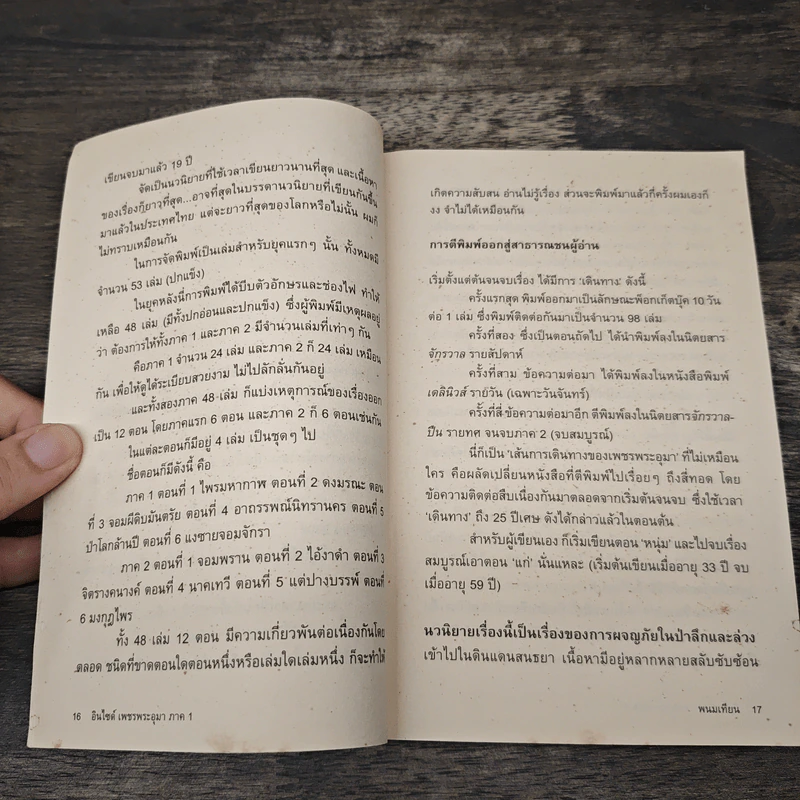 เขียนจบมาแล้ว 19 ปี
จัดเป็นนวนิยายที่ใช้เวลาเขียนยาวนานที่สุด และเนื้อหา
ของเรื่องก็ยาวที่สุด...อาจที่สุดในบรรดานวนิยายที่เขียนกันขึ้น
มาแล้วในประเทศไทย แต่จะยาวที่สุดของโลกหรือไม่นั้น ผมก็
ไม่ทราบเหมือนกัน
ในการจัดพิมพ์เป็นเล่มสำหรับยุคแรกๆ นั้น ทั้งหมดมี
จำนวน 53 เล่ม (ปกแข็ง)
ในยุคหลังนี้การพิมพ์ได้บีบตัวอักษรและช่องไฟ ทำให้
เหลือ 48 เล่ม (มีทั้งปกอ่อนและปกแข็ง) ซึ่งผู้พิมพ์มีเหตุผลอยู่
ว่า ต้องการให้ทั้งภาค 1 และภาค 2 มีจำนวนเล่มที่เท่าๆ กัน
คือภาค 1 จำนวน 24 เล่ม และภาค 2 ก็ 24 เล่ม เหมือน
กัน เพื่อให้ดูได้ระเบียบสวยงาม ไม่ไปลักลั่นกันอยู่
และทั้งสองภาค 48 เล่ม ก็แบ่งเหตุการณ์ของเรื่องออก
เป็น 12 ตอน โดยภาคแรก 6 ตอน และภาค 2 ก็ 6 ตอนเช่นกัน
ในแต่ละตอนก็มีอยู่ 4 เล่ม เป็นชุดๆ ไป
ชื่อตอนก็มีดังนี้ คือ
ภาค 1 ตอนที่ 1 ไพรมหากาฬ ตอนที่ 2 ดงมรณะ ตอน
ที่ 3 จอมผีดิบมันตรัย ตอนที่ 4 อาถรรพณ์นิทรานคร ตอนที่ 5
ป่าโลกล้านปี ตอนที่ 6 แงซายจอมจักรา
ภาค 2 ตอนที่ 1 จอมพราน ตอนที่ 2 ไอ้งาดำ ตอนที่ 3
จิตรางคนางค์ ตอนที่ 4 นาคเทวี ตอนที่ 5 แต่ปางบรรพ์ ตอนที่
6 มงกุฎไพร
ทั้ง 48 เล่ม 12 ตอน มีความเกี่ยวพันต่อเนื่องกันโดย
ตลอด ชนิดที่ขาดตอนใดตอนหนึ่งหรือเล่มใดเล่มหนึ่ง ก็จะทำให้
16 อินไซด์ เพชรพระอุมา ภาค 1
เกิดความสับสน อ่านไม่รู้เรื่อง ส่วนจะพิมพ์มาแล้วกี่ครั้งผมเองก็
งง จำไม่ได้เหมือนกัน
การตีพิมพ์ออกสู่สาธารณชนผู้อ่าน
เริ่มตั้งแต่ต้นจนจบเรื่อง ได้มีการ 'เดินทาง' ดังนี้
ครั้งแรกสุด พิมพ์ออกมาเป็นลักษณะพ็อกเก็ตบุ๊ค 10 วัน
ต่อ 1 เล่ม ซึ่งพิมพ์ติดต่อกันมาเป็นจำนวน 98 เล่ม
ครั้งที่สอง ซึ่งเป็นตอนถัดไป ได้นำพิมพ์ลงในนิตยสาร
จักรวาล รายสัปดาห์
ครั้งที่สาม ข้อความต่อมา ได้พิมพ์ลงในหนังสือพิมพ์
เดลินิวส์ รายวัน (เฉพาะวันจันทร์)
ครั้งที่สี่ ข้อความต่อมาอีก ตีพิมพ์ลงในนิตยสารจักรวาล-
ปืน รายทศ จนจบภาค 2 (จบสมบูรณ์)
นี่ก็เป็น 'เส้นการเดินทางของเพชรพระอุมา' ที่ไม่เหมือน
ใคร คือผลัดเปลี่ยนหนังสือที่ตีพิมพ์ไปเรื่อยๆ ถึงสี่ทอด โดย
ข้อความติดต่อสืบเนื่องกันมาตลอดจากเริ่มต้นจนจบ ซึ่งใช้เวลา
'เดินทาง' ถึง 25 ปีเศษ ดังได้กล่าวแล้วในตอนต้น
สำหรับผู้เขียนเอง ก็เริ่มเขียนตอน 'หนุ่ม' และไปจบเรื่อง
สมบูรณ์เอาตอน 'แก่' นั่นแหละ (เริ่มต้นเขียนเมื่ออายุ 33 ปี จบ
เมื่ออายุ 59 ปี)
นวนิยายเรื่องนี้เป็นเรื่องของการผจญภัยในป่าลึกและล่วง
เข้าไปในดินแดนสนธยา เนื้อหามีอยู่หลากหลายสลับซับซ้อน
พนมเทียน 17